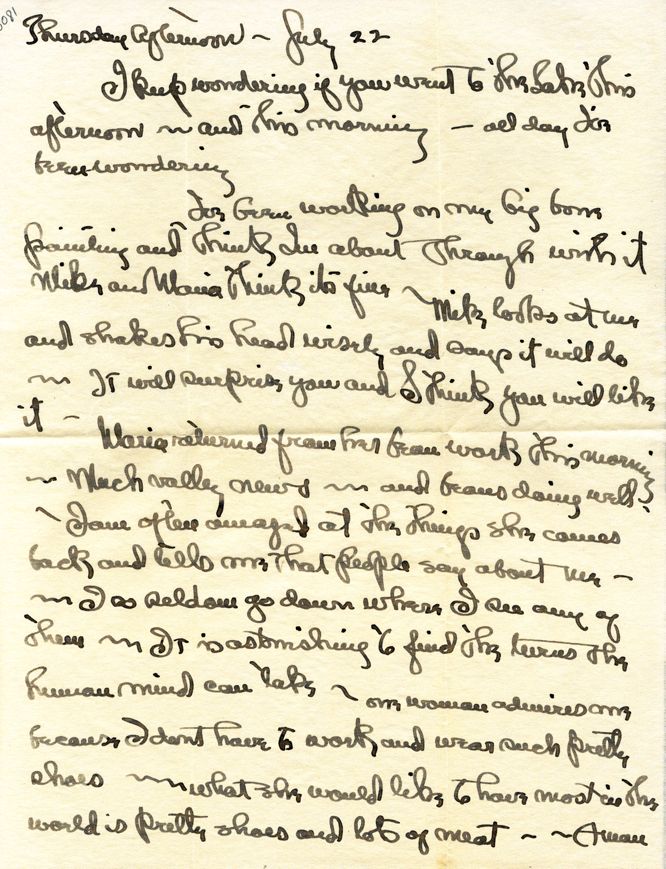 0081
Thursday Afternoon ~ July 22
I keep wondering if you went to the Lake this
afternoon ~ and this morning — all day I've
been wondering
I've been working on my big bone
painting and think I'm about through with it
Mike and Maria think its fine ~ Mike looks at me
and shakes his head wisely and says it will do
~ It will surprise you and I think you will like
it —
Maria returned from her bean work this morning
~ Much valley news ~ and beans doing well!
I am often amazed at the things she comes
back and tells me that people say about me —
~ I so seldom go down where I see any of
them ~ It is astonishing to find the turns the
human mind can take ~ one woman admires me
because I dont have to work and wear such pretty
shoes ~ what she would like to have most in the
world is pretty shoes and lots of meat ~ ~ A man